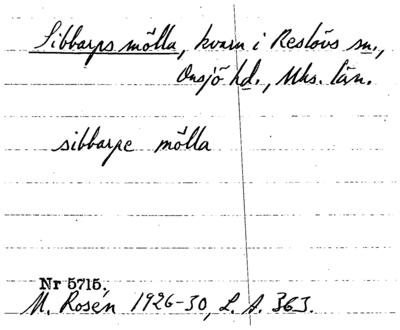 Sibbarps mölla, kvarn i Reslövs sn.,
Onsjö hd., Mhs. län.
sibbarpe mölla
Nr 5715.
M. Rosén 1926-30, L. A. 363.